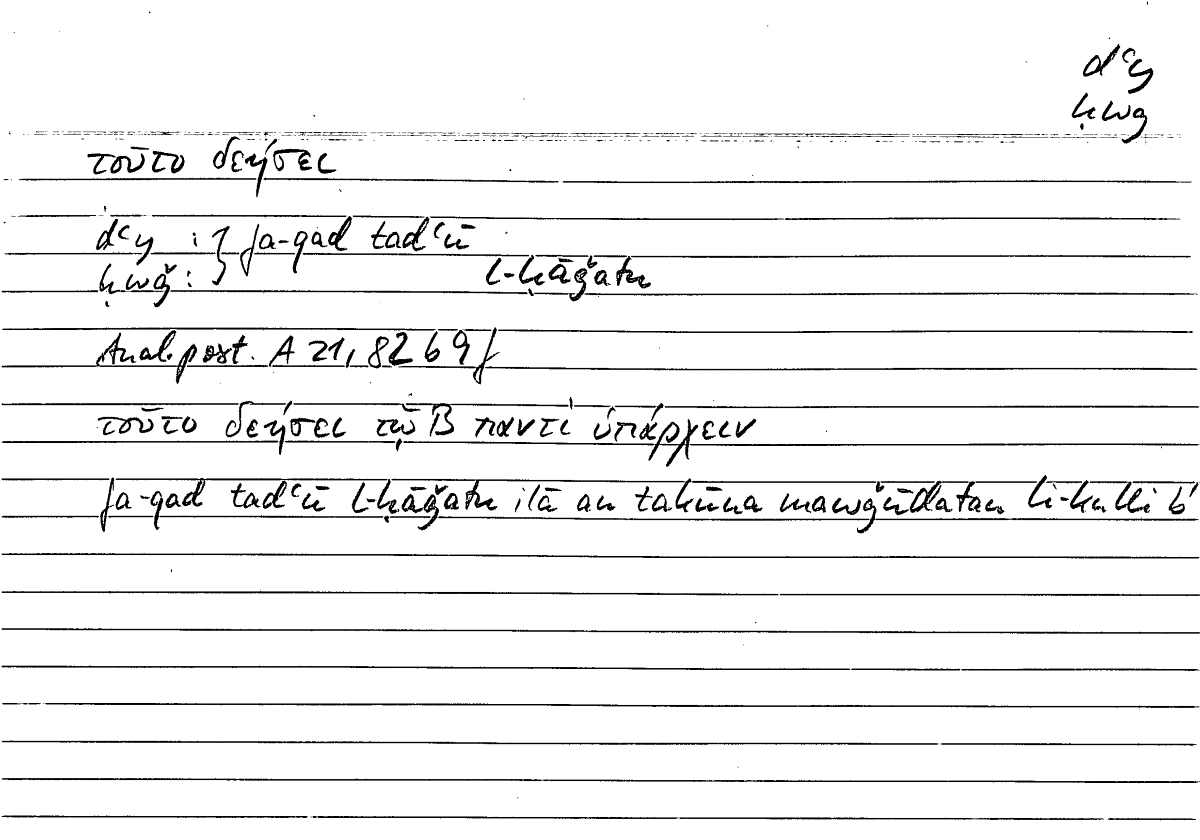 dʿy
ḥwg
τοῦτο δεήσει
dʿy : } fa-qad tadʿū
ḥwǧ : } l-ḥāǧatu
Anal. post. A 21, 82 b 9 f
τοῦτο δεήσει τῷ B παντὶ ὑπάρχειν
fa-qad tadʿū l-ḥāǧatu ilā an takūna mawǧūdatan li-kulli b